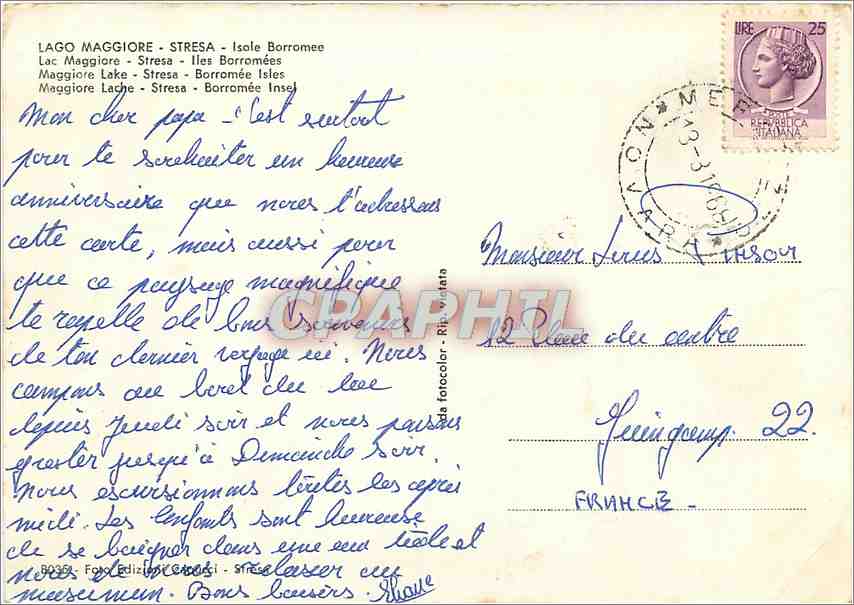 LAGO MAGGIORE - STRESA - Isole Borromee
Lac Maggiore - Stresa - Iles Borromées
Maggiore Lake - Stresa - Borromée Isles
Maggiore Lache - Stresa - Borromée Insel
Mon cher papa - C'est surtout
pour te souhaiter un heureux
anniversaire que nous t'adressons
cette carte, mais aussi pour
que ce paysage magnifique
te rapelle de bons souvenirs
de ton dernier voyage ici. Nous
campons au bord du lac
depuis Jeudi soir et nous pensons
rester jusqu'à Dimanche soir.
Nous excursionnons toutes les après
midi. Les enfants sont heureux
de se baigner dans une eau tiède et
nous de nous relaxer au
maximum. Bons baisers.
LIRE 25
POSTE
REPUBBLICA
ITALIANA
NOVARA
Monsieur Louis
12 Place du centre
Guingamp. 22.
FRANCE -
da fotocolor - Rip. vietata
8036 - Foto Edizioni Capucci - Stresa
CPAPHIL